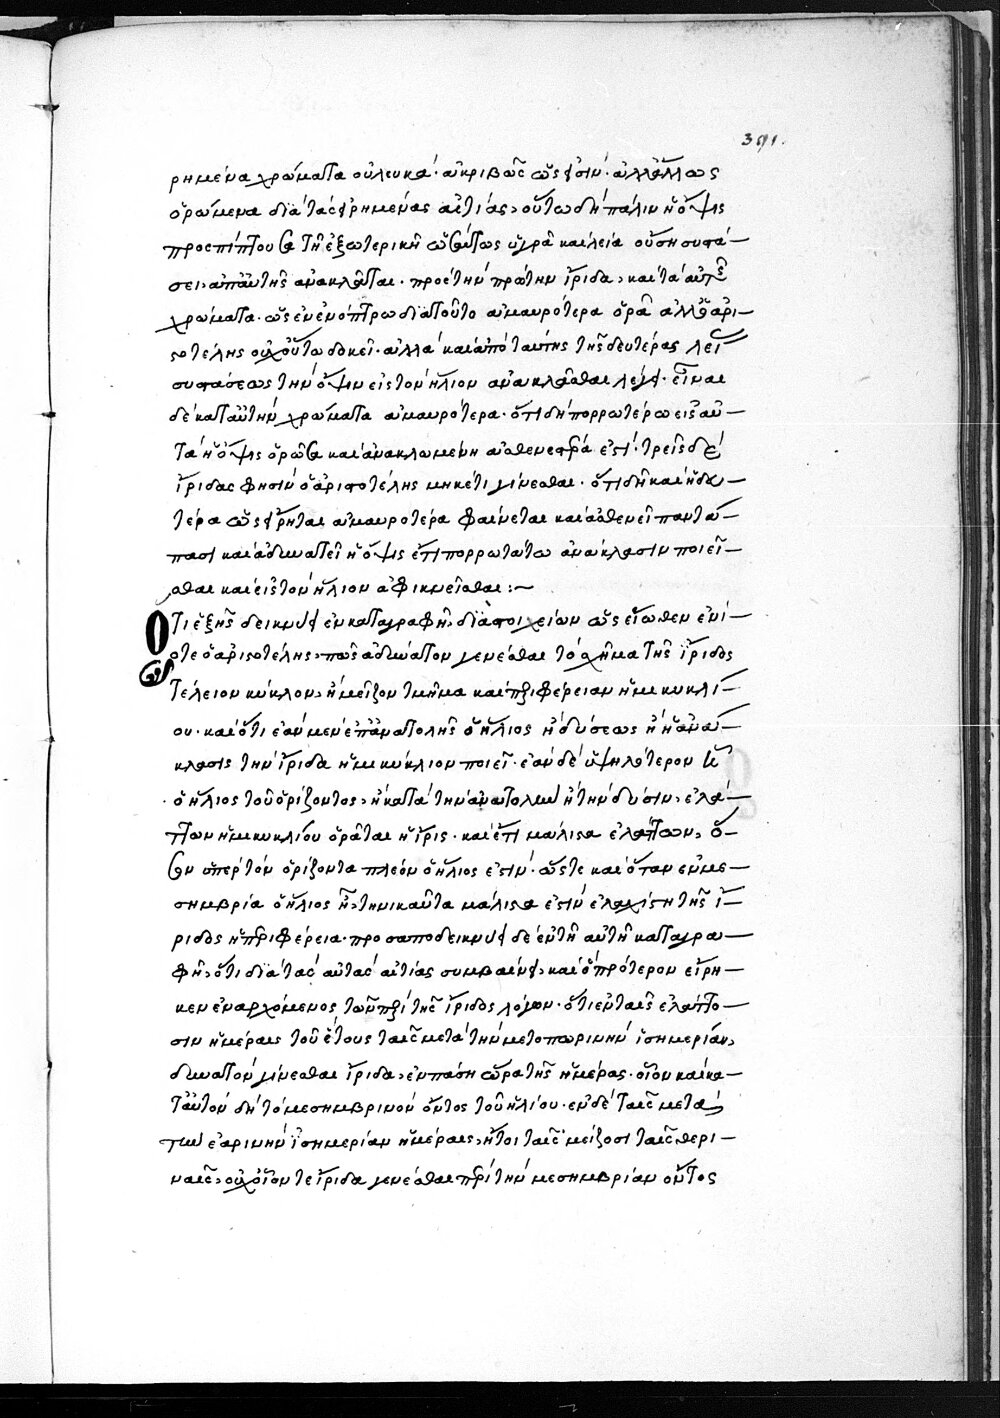 391.
ρημένα χρώματα οὐ λευκά· ἀκριβῶς ὥς εἰσιν· ἀλλ' ἄλλως
ὁρώμενα διὰ τὰς εἰρημένας αἰτίας, οὕτω δὴ πάλιν ἡ ὄψις
προσπίπτουσα τῇ ἐξωτερικῇ ὡσαύτως ὑγρᾷ καὶ λείᾳ οὔσῃ συστά–
σει, ἀπ' αὐτῆς ἀνακλᾶται· πρὸς τὴν πρώτην ἴριδα, καὶ τὰ αὐτῆς
χρώματα· ὡς ἐν ἐνόπτρῳ διὰ τοῦτο ἀμαυρότερα ὁρᾷ ἀλλ' ὁ ἀρι–
στοτέλης οὐχ οὕτω δοκεῖ· ἀλλὰ καὶ ἀπὸ ταύτης τῆς δευτέρας λεί
συστάσεως τὴν ὄψιν εἰς τὸν ἥλιον ἀνακλᾶσθαι λέγει· εἶναι
δὲ κατ' αὐτὴν χρώματα ἀμαυρότερα· ὅτι δὴ πορρωτέρω εἰς αὐ–
τὰ ἡ ὄψις ὁρῶσα καὶ ἀνακλωμένη ἀσθενεστέρα ἐστί· τρεῖς δὲ
ἴριδας φησὶν ὁ ἀριστοτέλης μηκέτι γίνεσθαι· ὅτι δὴ καὶ ἡ δευ–
τέρα ὡς εἴρηται ἀμαυροτέρα φαίνεται καὶ ἀσθενεῖ παντά–
πασι καὶ ἀδυνατεῖ ἡ ὄψις ἔτι πορρωτάτω ἀνάκλασιν ποιεῖ–
σθαι καὶ εἰς τὸν ἥλιον ἀφικνεῖσθαι :~
Ὅτι ἑξῆς δεικνύει ἐν καταγραφῇ, διὰ στοιχείων ὡς εἴωθεν ἐνί–
οτε ὁ ἀριστοτέλης, πῶς ἀδύνατον γενέσθαι τὸ σχῆμα τῆς ἴριδος
τέλειον κύκλον, ἢ μεῖζον τμῆμα καὶ περιφέρειαν ἡμικυκλί–
ου· καὶ ὅτι ἐὰν μὲν ἐπ' ἀνατολῆς ὁ ἥλιος ἢ δύσεως ᾖ ἡ ἀνά–
κλασις τὴν ἴριδα ἡμικύκλιον ποιεῖ· ἐὰν δὲ ὑψηλότερον ᾖ
ὁ ἥλιος τοῦ ὁρίζοντος, ἢ κατὰ τὴν ἀνατολὴν ἢ τὴν δύσιν, ἐλάτ–
των ἡμικυκλίου ὁρᾶται ἡ ἴρις· καὶ ἔτι μάλιστα ἐλάττων, ὅ–
σον ὑπὲρ τὸν ὁρίζοντα πλέον ὁ ἥλιος ἐστίν· ὥστε καὶ ὅταν ἐν με–
σημβρίᾳ ὁ ἥλιος ᾖ, τηνικαῦτα μάλιστα ἐστὶν ἐλαχίστη τῆς ἴ–
ριδος ἡ περιφέρεια· προσαποδεικνύει δὲ ἐν τῇ αὐτῇ καταγρα–
φῇ, ὅτι διὰ τὰς αὐτὰς αἰτίας συμβαίνει, καὶ ὃ πρότερον εἴρη–
κεν ἐναρχόμενος τῶν περὶ τῆς ἴριδος λόγων· ὅτι ἐν ταῖς ἐλάττο–
σιν ἡμέραις τοῦ ἔτους ταῖς μετὰ τὴν μετοπωρινὴν ἰσημερίαν,
δυνατὸν γίνεσθαι ἴριδα, ἐν πάσῃ ὥρᾳ τῆς ἡμέρας· οἷον καὶ κα–
τ' αὐτὸν δὴ τὸ μεσημβρινὸν ὄντος τοῦ ἡλίου· ἐν δὲ ταῖς μετὰ
τὴν ἐαρινὴν ἰσημερίαν ἡμέραις, ἤτοι ταῖς μείζοσι ταῖς θερι–
ναῖς, οὐχ οἷόν τε ἴριδα γενέσθαι περὶ τὴν μεσημβρίαν ὄντος